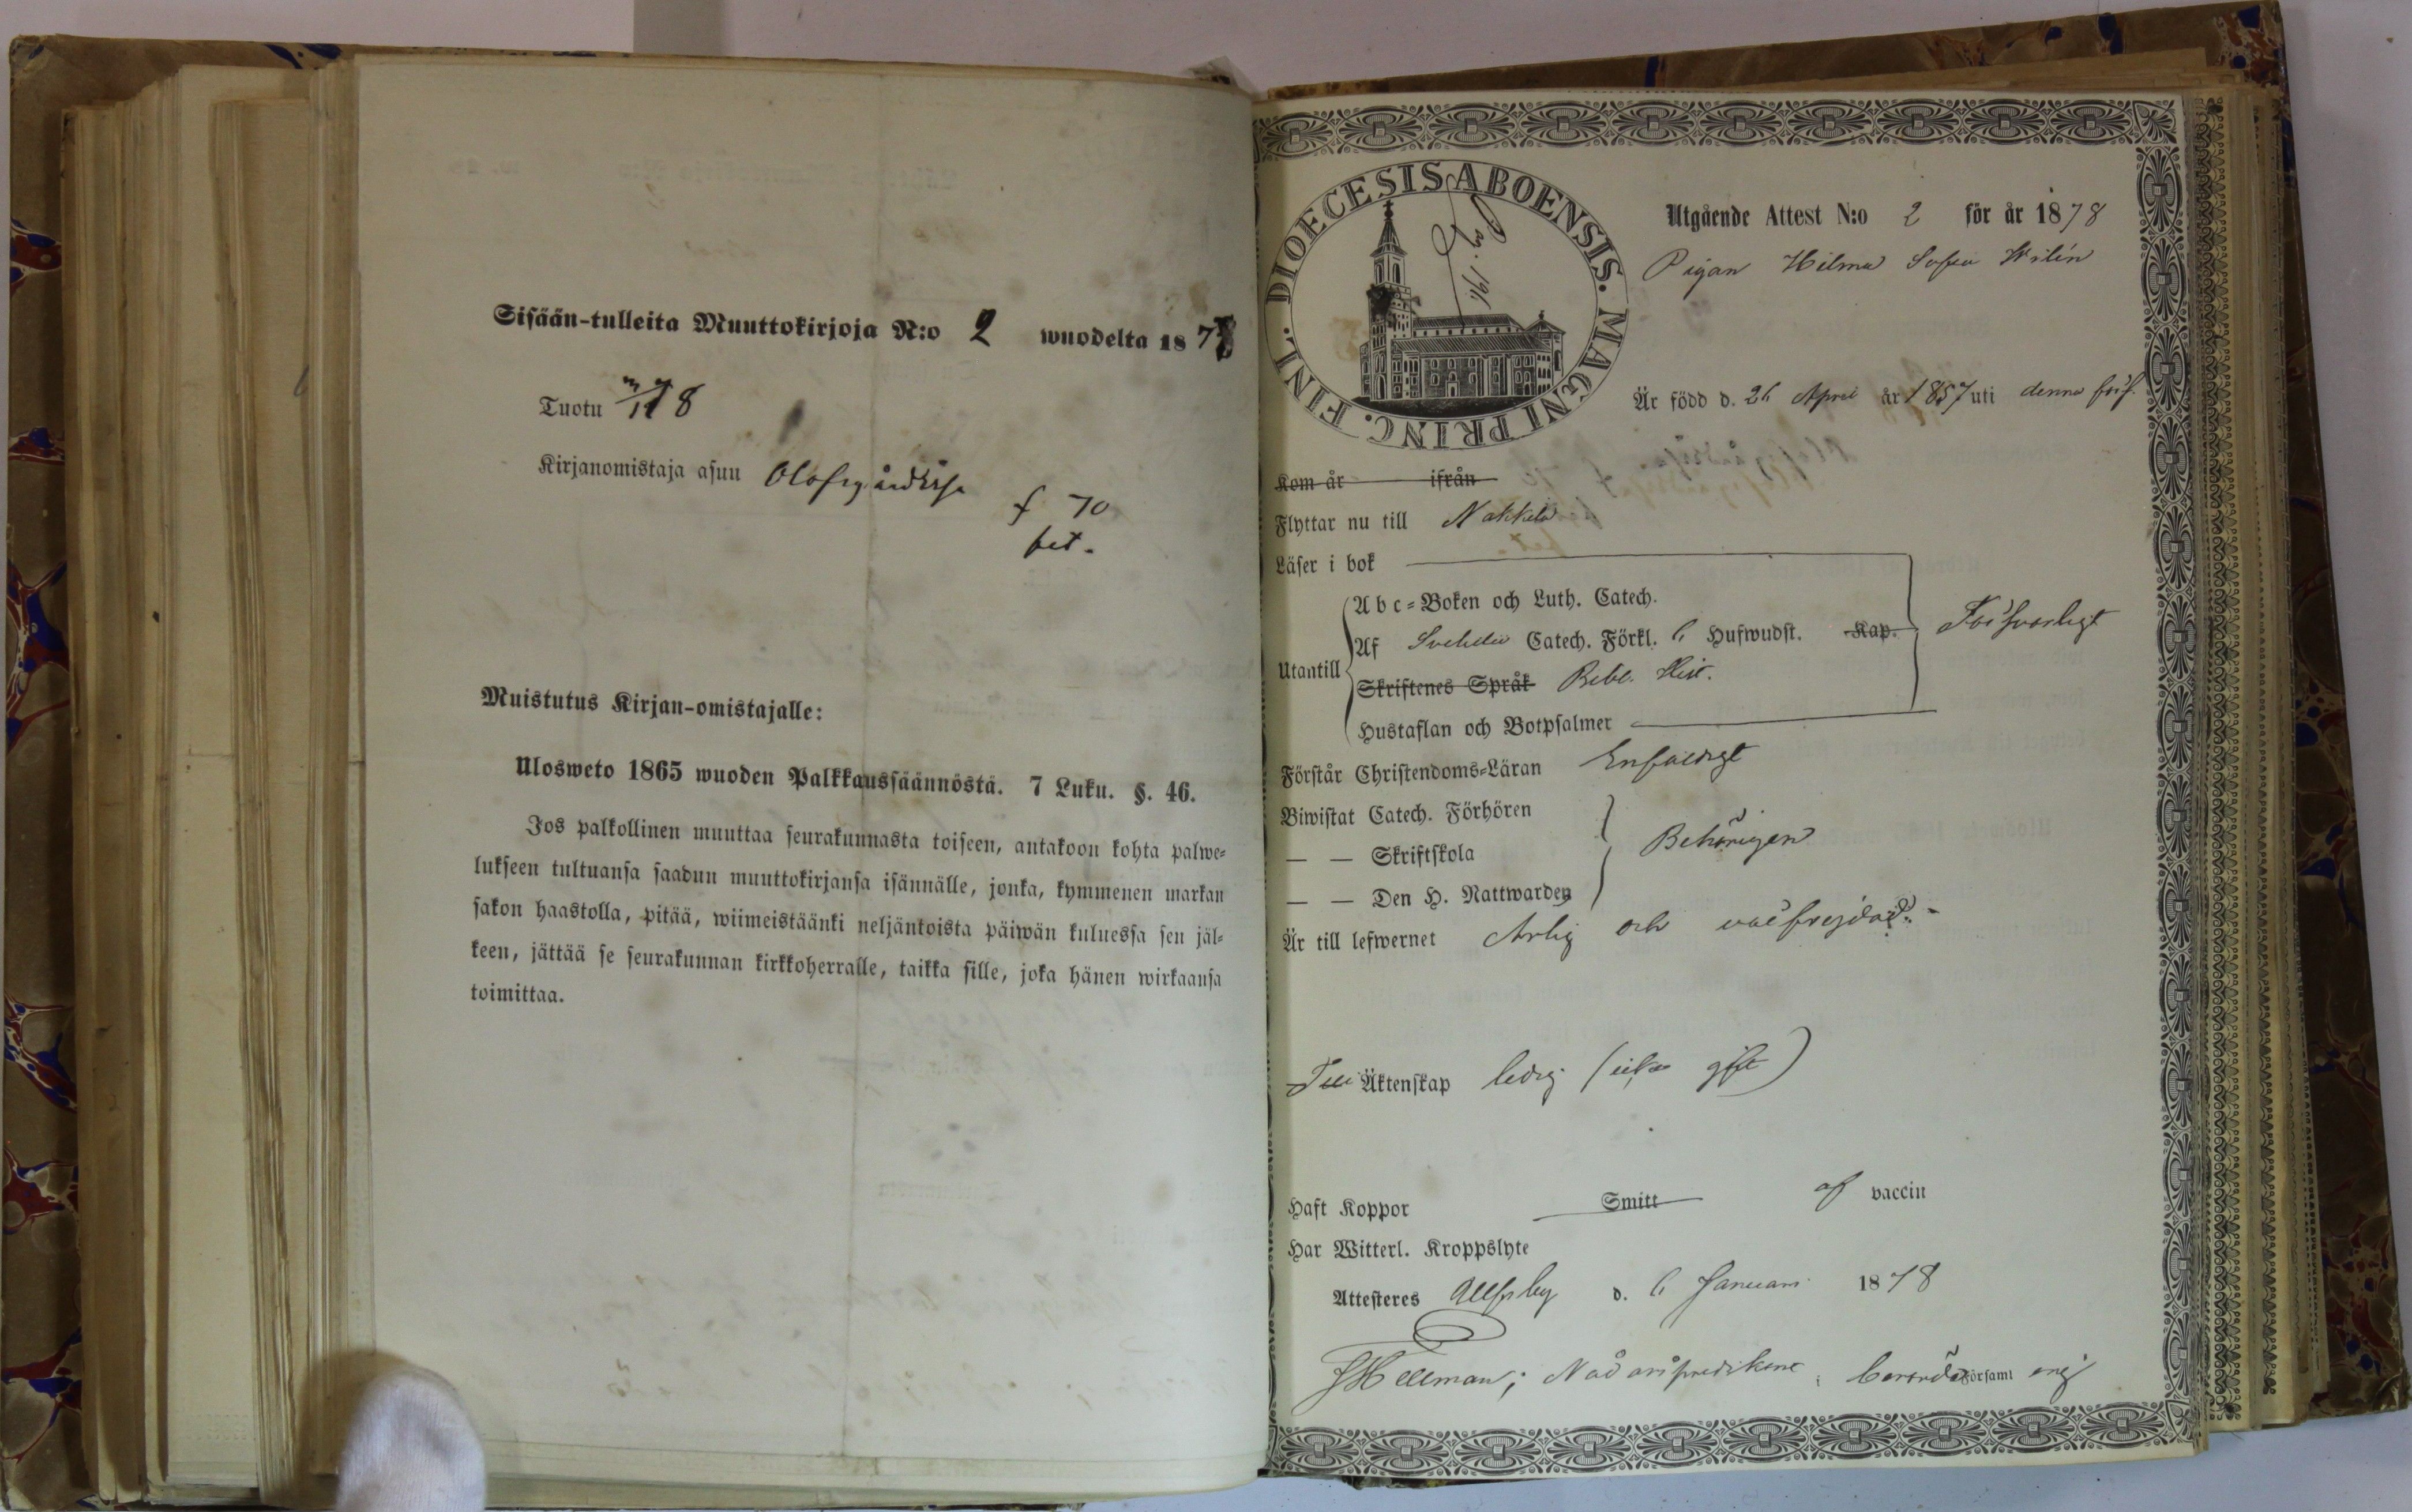 Sisään-tulleita Muuttokirjoja N:o 2 wuodelta 1878
Tuotu 8
Kirjanomistaja asuu Olofsgårdissa
f 70
bet.
Muistutus Kirjan-omistajalle:
Ulosweto 1865 wuoden Palkkaussäännöstä. 7 Luku. §. 46.
Jos palkollinen muuttaa seurakunnasta toiseen, antakoon kohta palwe=
lukseen tultuansa saadun muuttokirjansa isännälle, jonka, kymmenen markan
sakon haastolla, pitää, wiimeistäänki neljäntoista päiwän kuluessa sen jäl=
keen, jättää se seurakunnan kirkkoherralle, taikka sille, joka hänen wirkaansa
toimittaa.
DIOECESIS ABOENSIS. MAGNI PRINC. FINL.
Pag. 196
Utgående Attest N:o 2 för år 1878
Pigan Hilma Sofia Wilén
Är född d. 26 April år 1857 uti denna förs.
Kom år ifrån
Flyttar nu till Nakkila
Läser i bok
Abc=Boken och Luth. Catech.
Utantill Af Svebelii Catech. Förkl. 6 Hufwudst. Kap. Försvarligt
Skriftenes Språk Bibl. Hist.
Hustaflan och Botpsalmer
Förstår Christendoms=Läran Enfaldigt
Biwistat Catech. Förhören
— — Skriftskola Behörigen
— — Den H. Nattwarden
Är till lefwernet Ärlig och välfrejdad.
Till Äktenskap ledig (icke gift)
Haft Koppor Smitt af vaccin
Har Witterl. Kroppslyte
Attesteres Ulfsby d. 6 Januari 1878
Hellman; Nådårspredikant i berörda Församl